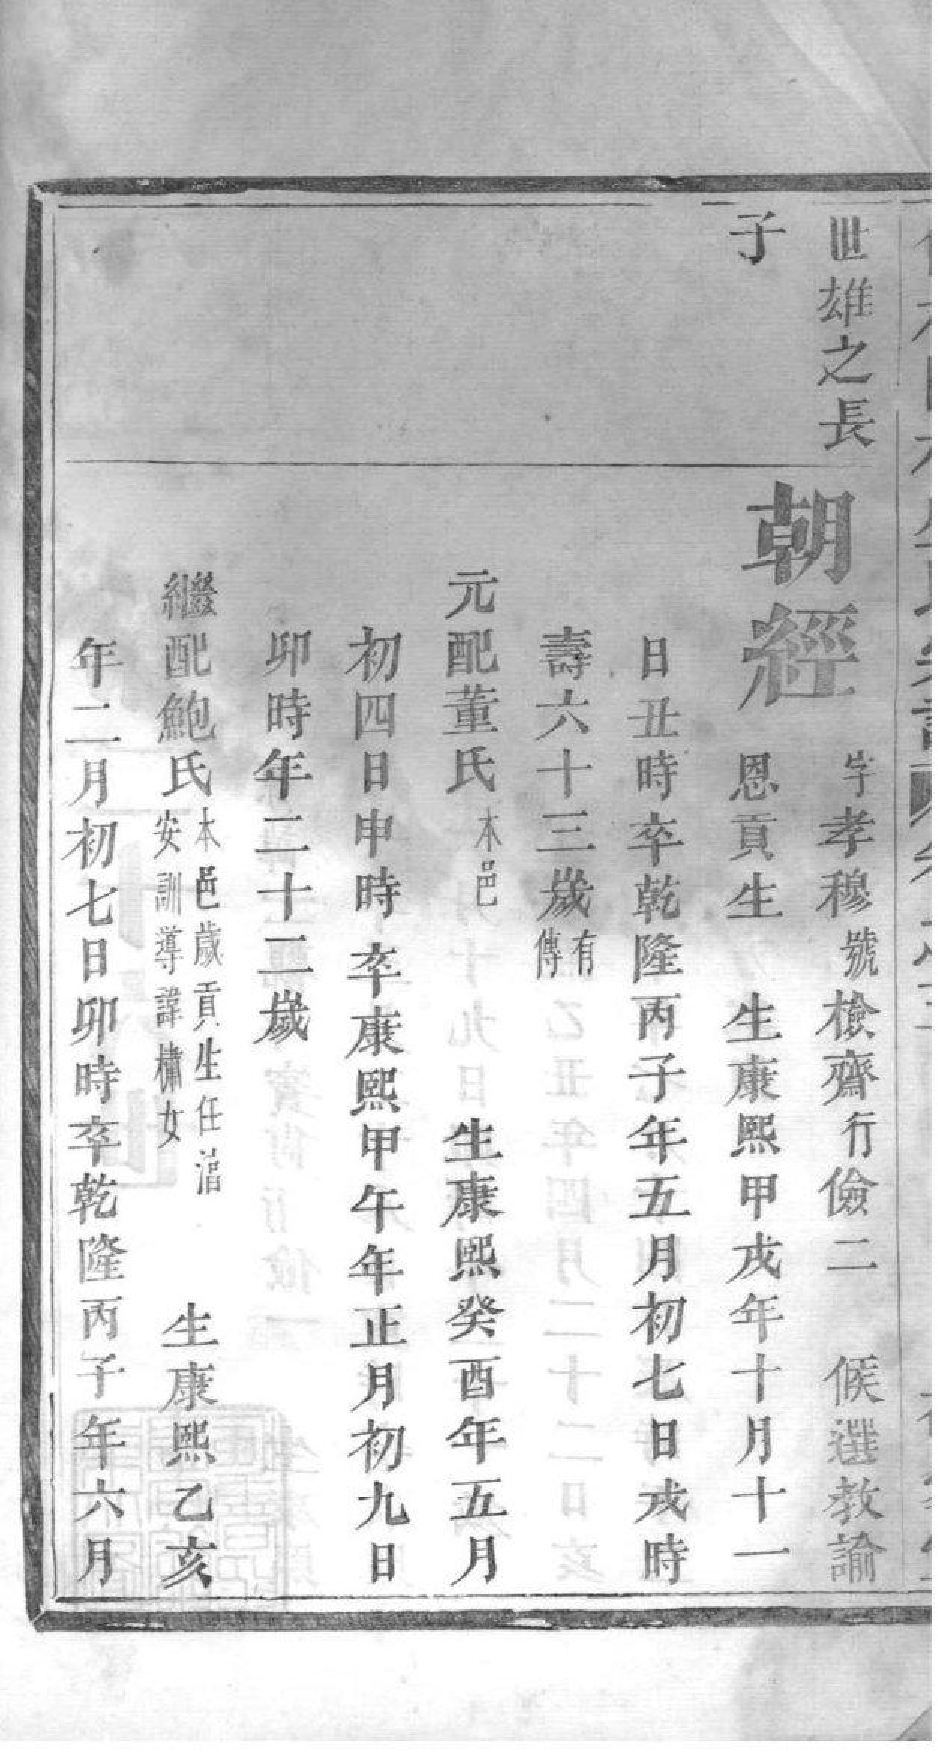 世雄之長
子
朝經
字孝穆號檢齋行儉二 候選教諭
恩貢生 生康熙甲戌年十月十一
日丑時卒乾隆丙子年五月初七日戌時
壽六十三歲有傳
元配董氏本邑 生康熙癸酉年五月
初四日申時卒康熙甲午年正月初九日
卯時年二十二歲
繼配鮑氏本邑歲貢生任
安訓導諱橚女 生康熙乙亥
年二月初七日卯時卒乾隆丙子年六月